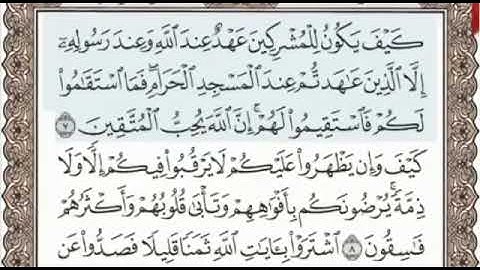 كَيْفَ يَكُونُ لِلْمُشْرِكِينَ عَهْدٌ عِندَ ٱللَّهِ وَعِندَ رَسُولِهِۦٓ
إِلَّا ٱلَّذِينَ عَٰهَدتُّمْ عِندَ ٱلْمَسْجِدِ ٱلْحَرَامِۖ فَمَا ٱسْتَقَٰمُوا۟
لَكُمْ فَٱسْتَقِيمُوا۟ لَهُمْۚ إِنَّ ٱللَّهَ يُحِبُّ ٱلْمُتَّقِينَ ٧
كَيْفَ وَإِن يَظْهَرُوا۟ عَلَيْكُمْ لَا يَرْقُبُوا۟ فِيكُمْ إِلًّا وَلَا
ذِمَّةًۚ يُرْضُونَكُم بِأَفْوَٰهِهِمْ وَتَأْبَىٰ قُلُوبُهُمْ وَأَكْثَرُهُمْ
فَٰسِقُونَ ٨ ٱشْتَرَوْا۟ بِـَٔايَٰتِ ٱللَّهِ ثَمَنًا قَلِيلًا فَصَدُّوا۟ عَن